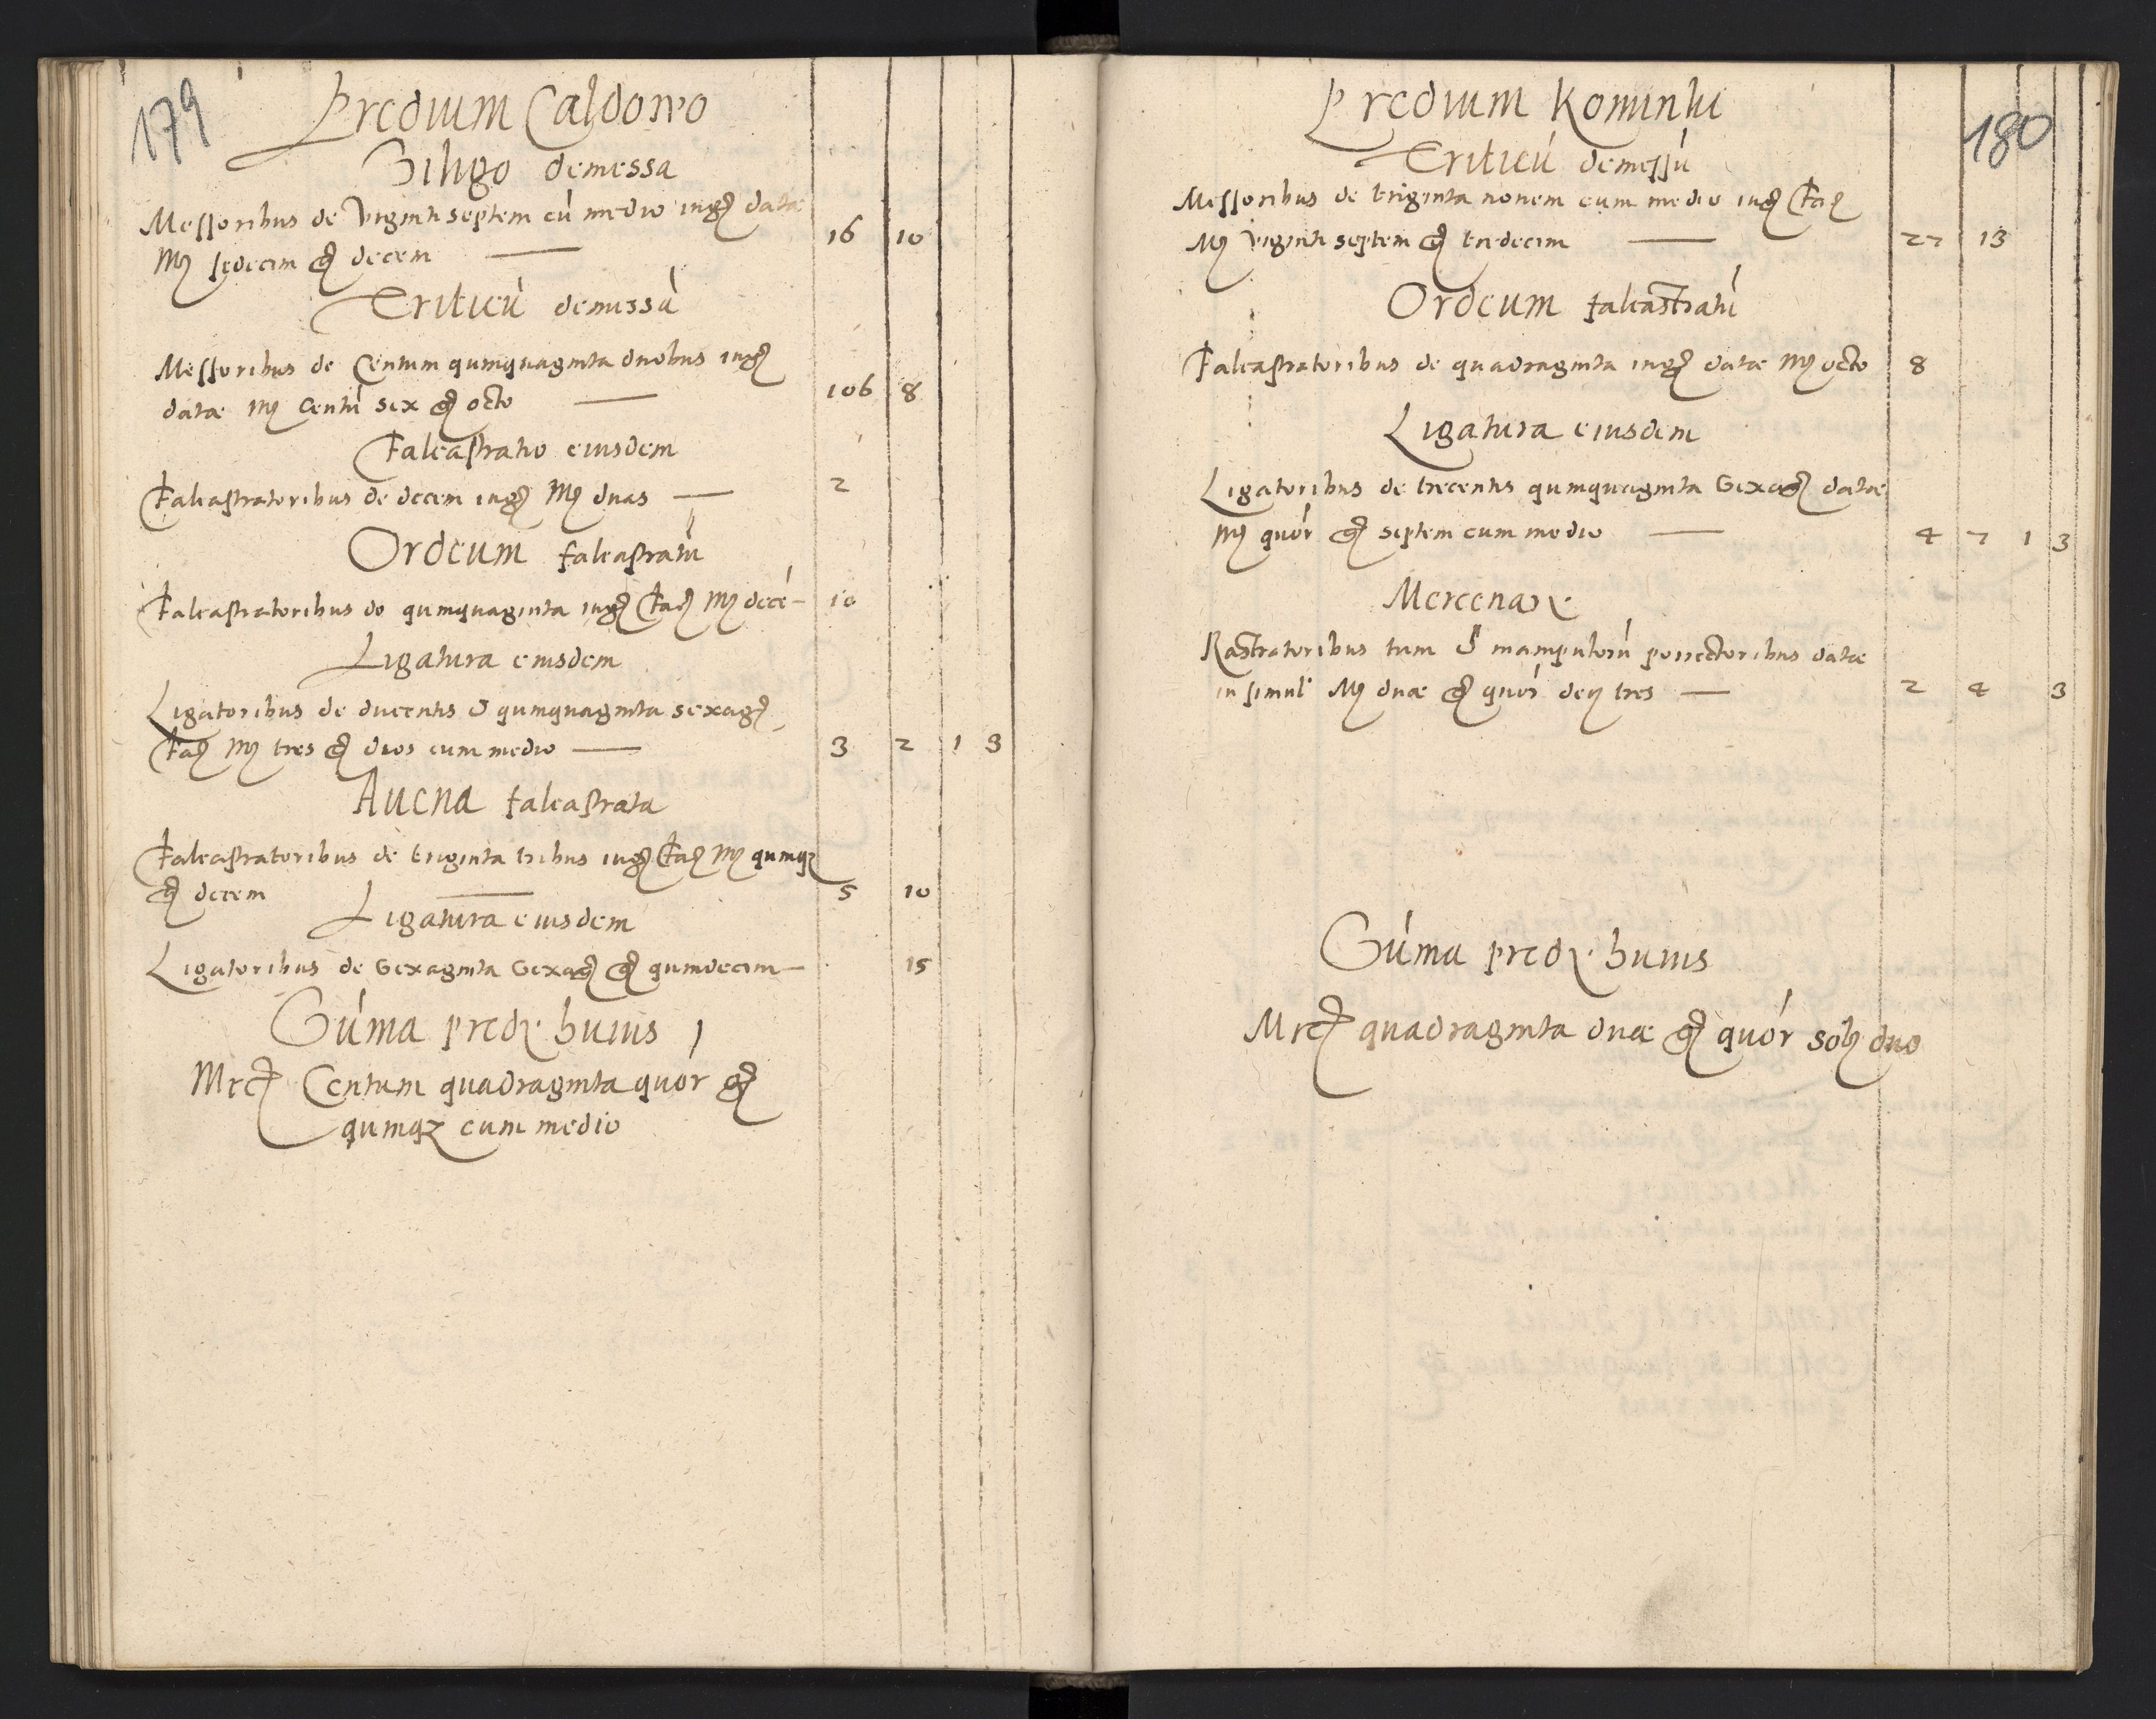 179
Predium Caldowo
Siligo demessa
Messoribus de viginti septem cú medio iugȝ datæ
Mȝ sedecim gȝ decem — 16 10
Triticú demessú
Messoribus de Centum quinquaginta duobus iugȝ
datæ Mȝ Centú sex gȝ octo — 106 8
Falcastratio eiusdem
Falcastratoribus de decem iugȝ Mȝ duas — 2
Ordeum falcastratú
Falcastratoribus de quinquaginta iugȝ facȝ Mȝ decé — 10
Ligatura eiusdem
Ligatoribus de ducentis & quinquaginta sexagȝ
facȝ Mȝ tres gȝ duos cum medio — 3 2 1 3
Auena falcastrata
Falcastratoribus de triginta tribus iugȝ facȝ Mȝ quinqȝ
gȝ decem — 5 10
Ligatura eiusdem
Ligatoribus de sexaginta sexagȝ gȝ quindecim — 15
Súma predȝ huius
Mrcȝ Centum quadraginta quór gȝ
quinqȝ cum medio
180
Predium Kominki
Triticú demessú
Messoribus de triginta nouem cum medio iugȝ facȝ
Mȝ viginti septem gȝ tredecim — 27 13
Ordeum falcastratú
Falcastratoribus de quadraginta iugȝ datæ Mȝ octo 8
Ligatura eiusdem
Ligatoribus de trecentis quinquaginta sexagȝ datæ
Mȝ quór gȝ septem cum medio — 4 7 1 3
Mercenarȝ
Rastratoribus tum & manipulorú porrectoribus datæ
in simul Mȝ duæ gȝ quór denȝ tres — 2 4 3
Súma predȝ huius
Mrcȝ quadraginta duæ gȝ quór solȝ duo